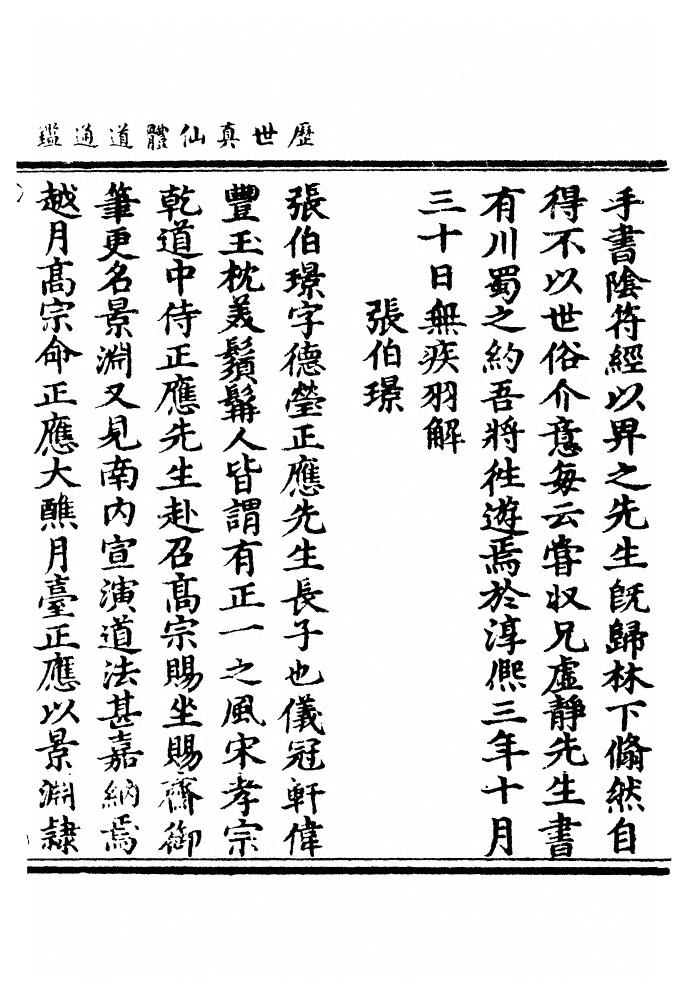 歷世真仙體道通鑑
手書陰符經以畀之先生旣歸林下翛然自
得不以世俗介意每云嘗収兄虛靜先生書
有川蜀之約吾將徃遊焉於淳熈三年十月
三十日無疾羽解
張伯璟
張伯璟字德瑩正應先生長子也儀冠軒偉
豐玉枕美鬚髯人皆謂有正一之風宋孝宗
乾道中侍正應先生赴召髙宗賜坐賜齋御
筆更名景淵又見南内宣演道法甚嘉納焉
越月髙宗命正應大醮月臺正應以景淵隷